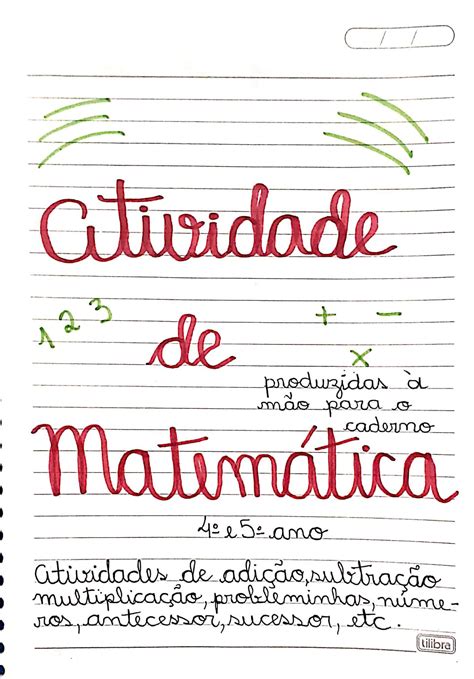 / /
Atividade
1 2 3
+ -
de
x
produzidas à
mão para o
caderno
Matemática
4º e 5º ano
Atividades de adição, subtração
multiplicação, probleminhas, núme-
ros, antecessor, sucessor, etc.
tilibra